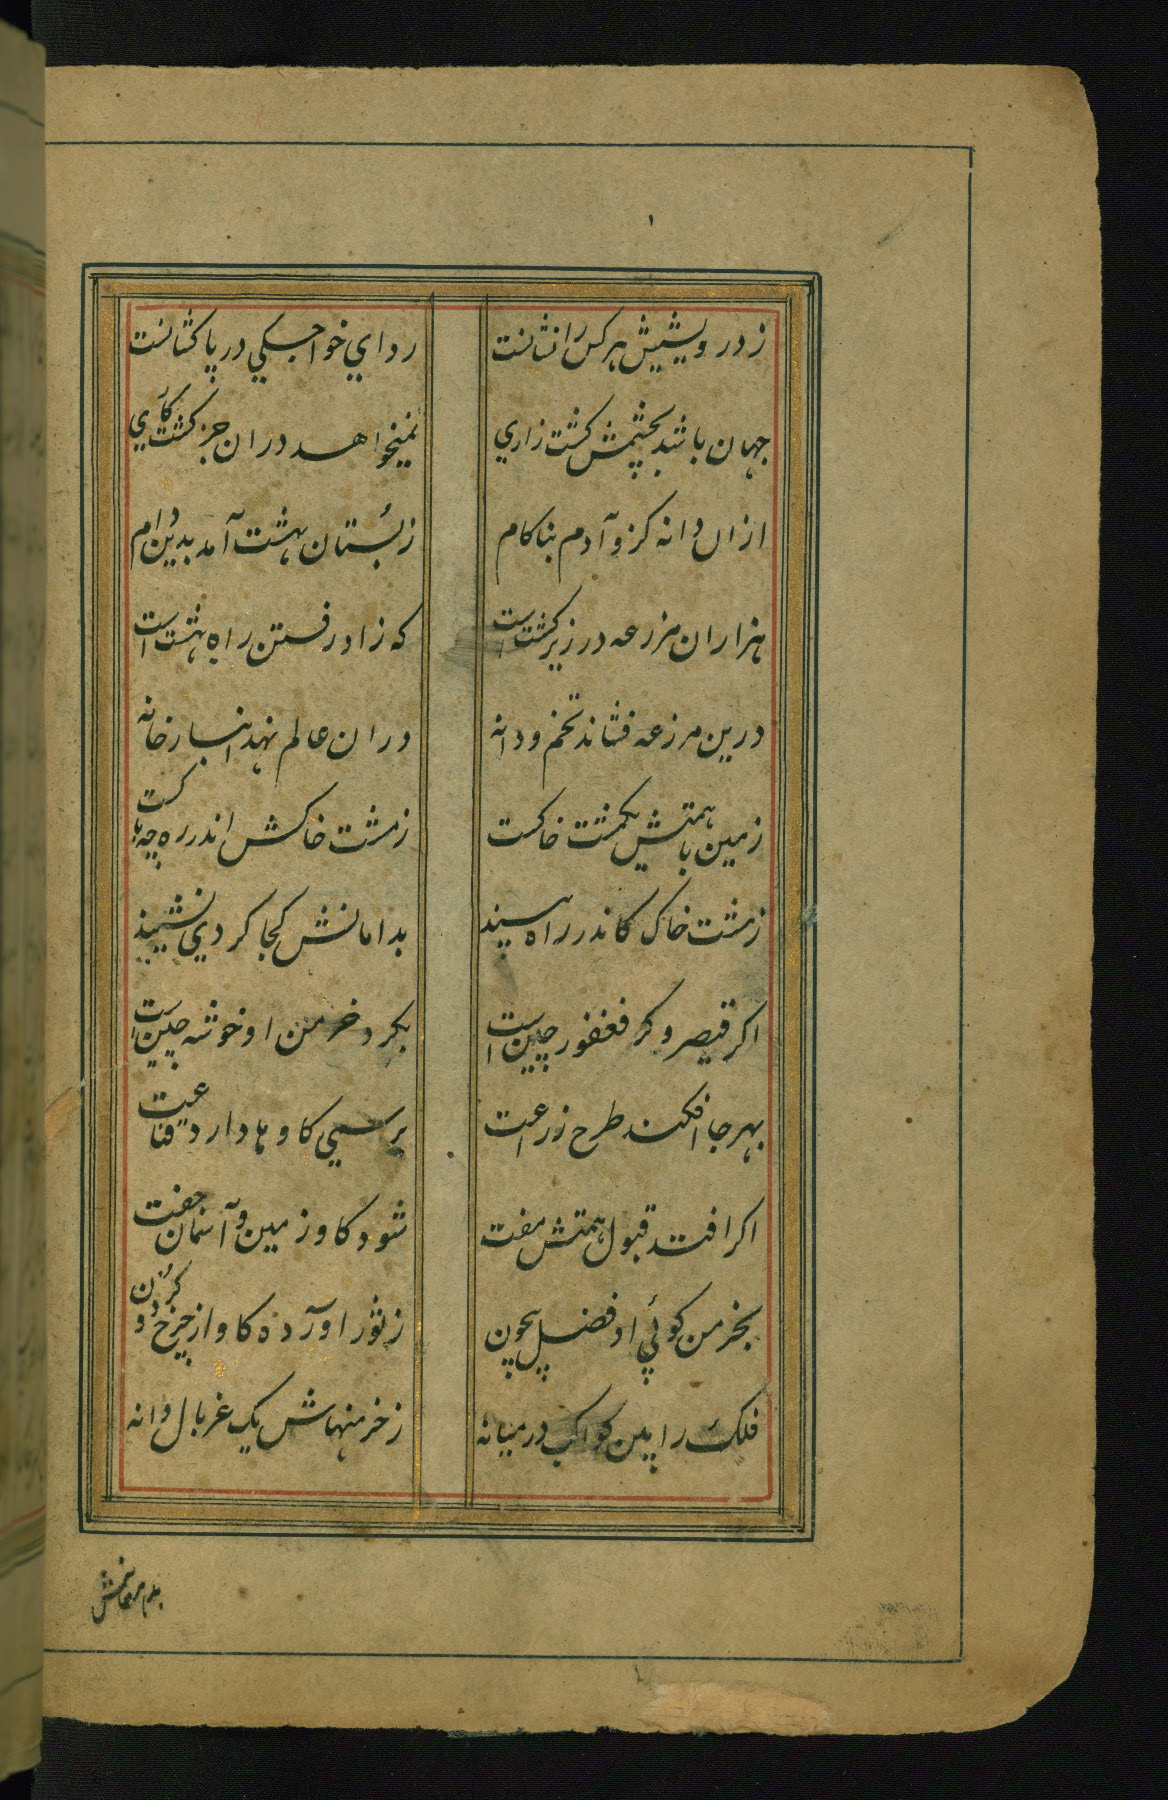 ز درویشیش هر کس را نشانست ردای خواجکی در پا کشانست
جهان باشد بچشمش کشت زاری نمیخواهد دران جز کشت کاری
ازان دانه کزو آدم بناکام ز بُستان بهشت آمد بدین دام
هزاران مزرعه در زیر کشت است که زاد رفستن راه بهشت است
درین مزرعه فشاند تخم و دانه دران عالم نهد انبار خانه
زمین با همتش یکمشت خاکست ز مشت خاکش اندر ره چه باکست
ز مشت خاک کاندر راه بیند بدامانش کجا کردی نشیند
اکر قیصر وکر فغفور چین است بکرد خرمن او خوشه چین است
بهر جا افکند طرح زراعت بر سیمی کاوها دارد قناعت
اکر افتد قبول همتش مفت شود کاو زمین و آسمان جفت
بخرمن کوئی او فضل بیچون ز ثور آورده کاو از چرخ کردون
فلک را بین کواکب در میانه ز خرمنهاش یک غربال دانه